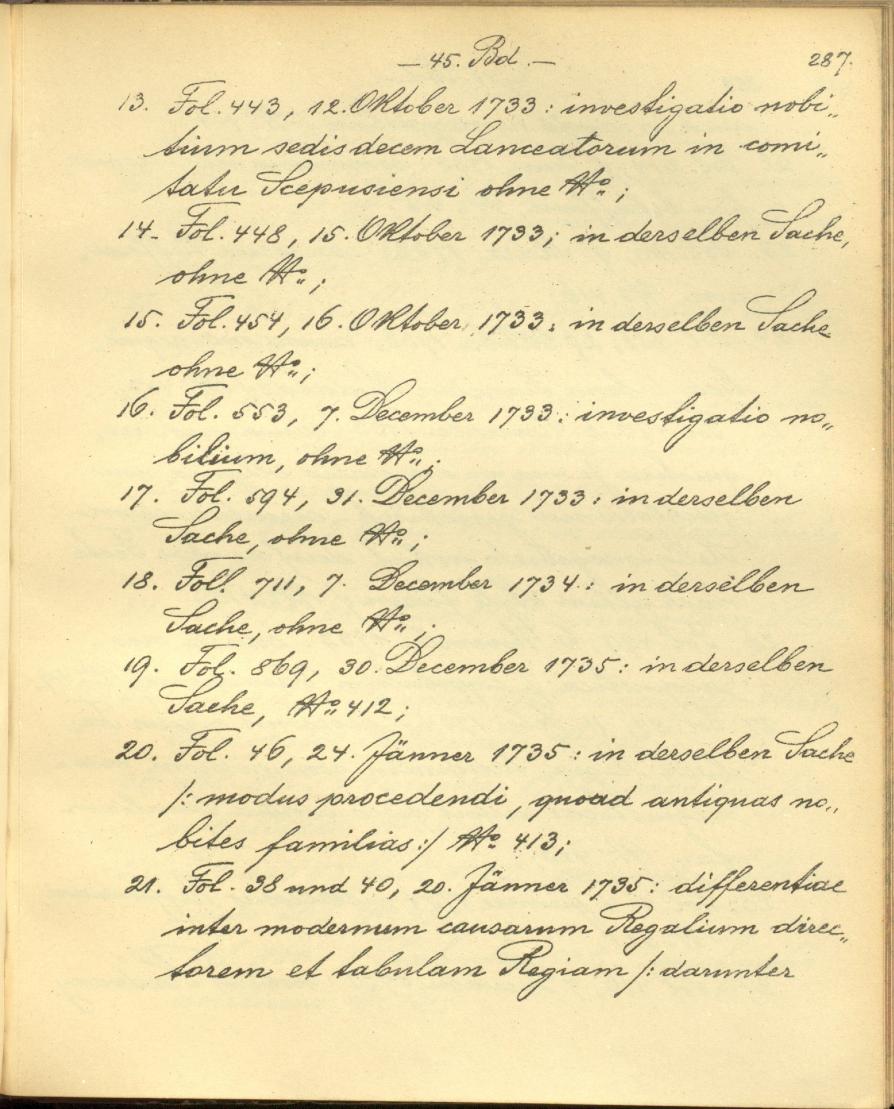 — 45. Bd. —
287.
13. Fol. 443, 12. Oktober 1733: investigatio nobi„
tium sedis decem Lanceatorum in comi„
tatu Scepusiensi ohne No;
14. Fol. 448, 15. Oktober 1733; in derselben Sache,
ohne No;
15. Fol. 454, 16. Oktober 1733: in derselben Sache
ohne No;
16. Fol. 553, 7. December 1733: investigatio no„
bilium, ohne No;
17. Fol. 594, 31. December 1733: in derselben
Sache, ohne No;
18. Foll. 711, 7. December 1734: in derselben
Sache, ohne No;
19. Fol. 869, 30. December 1735: in derselben
Sache, No 412;
20. Fol. 46, 24. Jänner 1735: in derselben Sache
/: modus procedendi, quoad antiquas no„
bites familias :/ No 413;
21. Fol. 38 und 40, 20. Jänner 1735: differentiae
inter modernum causarum Regalium direc„
torem et tabulam Regiam /: darunter